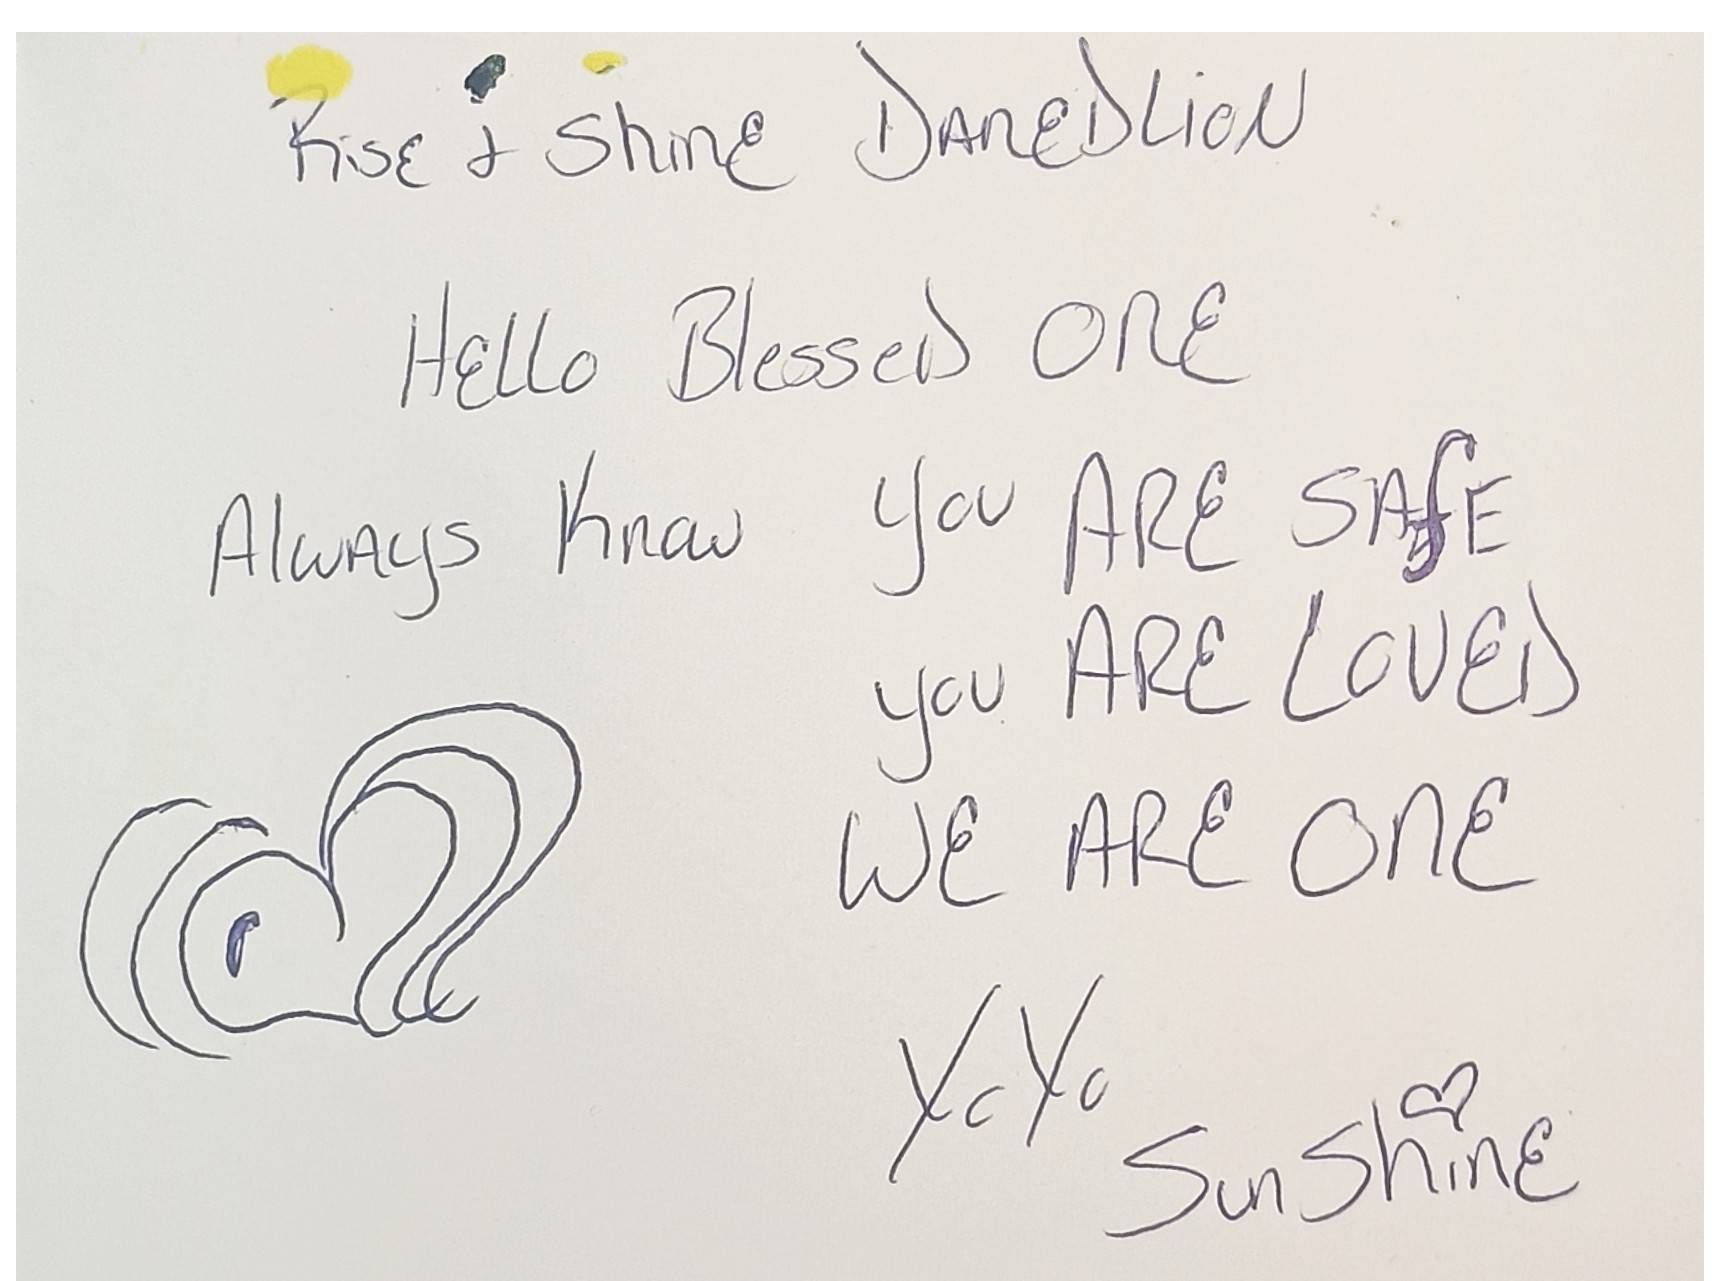 Rise & Shine DANEDLION
Hello Blessed ONE
Always Know you ARE SAfE
you ARE LOVED
WE ARE ONE
YoYo
SunShinE